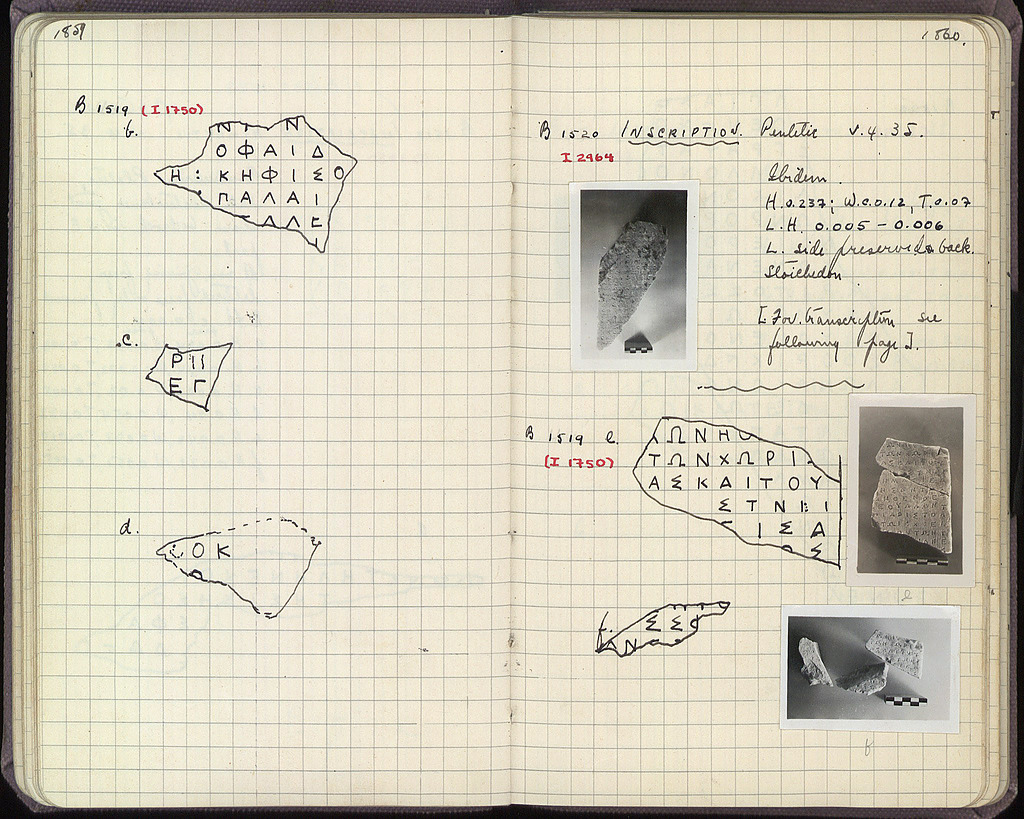 1859
B 1519 (I 1750)
b.
Ν Ν
Ο Φ Α Ι Δ
Η : Κ Η Φ Ι Σ Ο
Π Α Λ Α Ι
Λ Λ Ε
c.
Ρ Ι Ι
Ε Γ
d.
Ο Κ
1860.
B 1520 INSCRIPTION. Pentelic v.4.35.
I 2964
Ibidem.
H. 0.237; W. 0.12, T. 0.07
L.H. 0.005 – 0.006
L. side preserved & back.
Stoichedon
[For transcription see
following page].
B 1519 e.
(I 1750)
Ω Ν Η
Τ Ω Ν Χ Ω Ρ Ι
Α Σ Κ Α Ι Τ Ο Υ
Σ Τ Ν Ι : Ι
Ι Σ Α
Σ
e
f.
Σ Σ
Ν
f